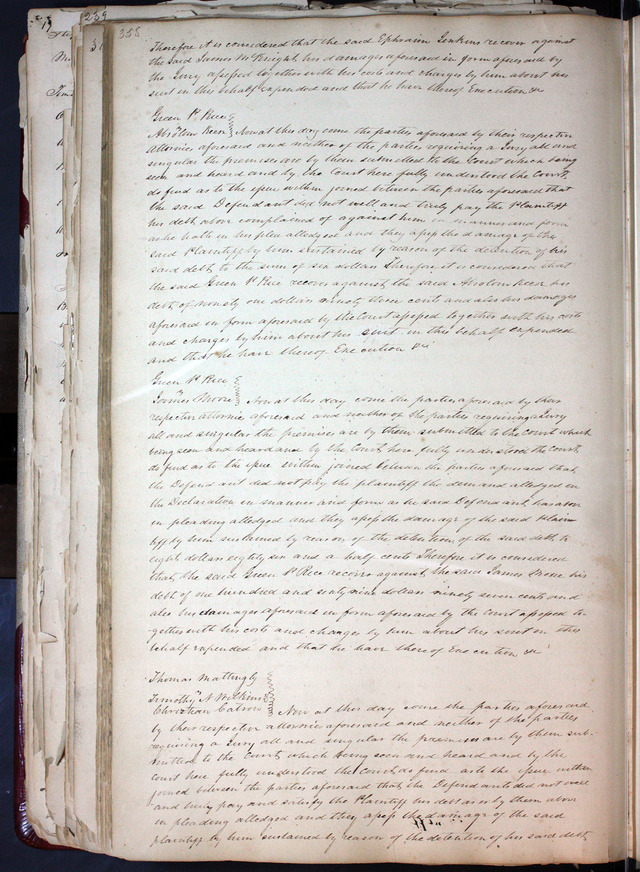 239
355
Therefore it is considered that the said Ephraim Jenkins recover against
the said James McKnight his damages aforesaid in form aforesaid by
the Jury assessed together with his costs and charges by him about his
suit in this behalf expended and that he have thereof Execution &c
Green P. Rice
Absolom Keen } Now at this day come the parties aforesaid by their respective
attornies aforesaid and neither of the parties requiring a Jury all and
singular the premises are by them submitted to the Court which being
seen and heard and by the Court here fully understood the Court
do find as to the issue within joined between the parties aforesaid that
the said Defendant did not well and truly pay the Plaintiff
his debt above complained of against him in manner and form
as he hath in his plea alledged and they assess the damage of the
said Plaintiff by him sustained by reason of the detention of his
said debt to the sum of six dollars Therefore it is considered that
the said Green P Rice recover against the said Absolom Keen his
debt of ninety one dollars ninety three cents and also his damages
aforesaid in form aforesaid by the Court assessed together with his costs
and charges by him about his suit in this behalf expended
and that he have thereof Execution &c
Green P. Rice
James Moore } Now at this day come the parties aforesaid by their
respective attornies aforesaid and neither of the parties requiring a Jury
all and singular the premises are by them submitted to the Court which
being seen and heard and by the Court here fully understood the Court
do find as to the issue within joined between the parties aforesaid that
the Defendant did not pay the plaintiff the demand alledged in
the Declaration in manner and form as he said Defendant has
in pleading alledged and they assess the damage of the said Plain
tiff by him sustained by reason of the detention of the said debt to
eight dollars eighty six and a half cents Therefore it is considered
that the said Green P Rice recover against the said James Moore his
debt of one hundred and sixty nine dollars ninety seven cents and
also his damages aforesaid in form aforesaid by the Court assessed to-
gether with his costs and charges by him about his suit in this
behalf expended and that he have thereof Execution &c
Thomas Mattingly
Timothy N Wilkins
Christian Catron } Now at this day come the parties aforesaid
by their respective attornies aforesaid and neither of the parties
requiring a Jury all and singular the premises are by them sub-
mitted to the Court which being seen and heard and by the
Court here fully understood the Court do find as to the issue within
joined between the parties aforesaid that the Defendants did not well
and truly pay and satisfy the Plaintiff his debt as by them above
in pleading alledged and they assess the damage of the said
plaintiff by him sustained by reason of the detention of his said debt